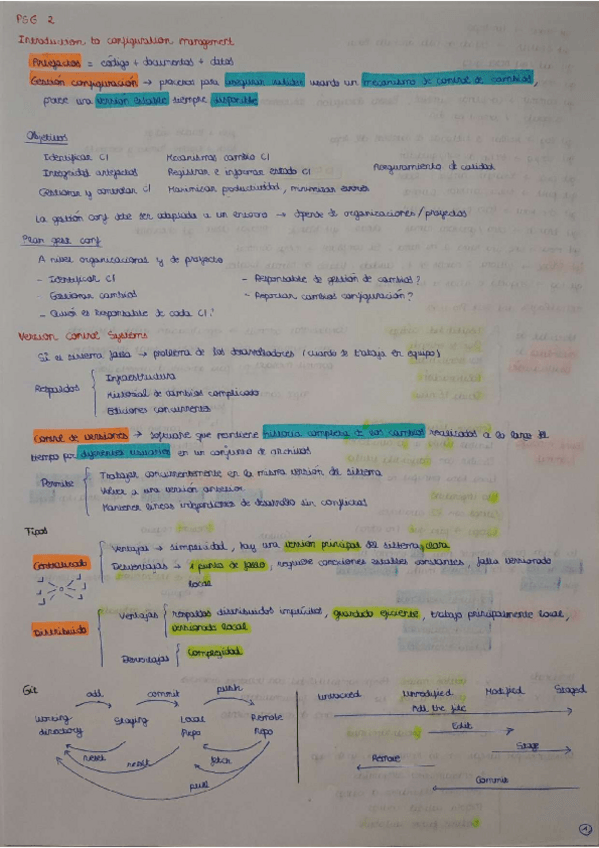 PSG 2
Introduction to configuration management
Artefactos = código + documentos + datos
Gestión configuración → procesos para asegurar validez usando un mecanismo de control de cambios,
posee una versión estable siempre disponible
Objetivos
Identificar CI Mecanismos cambio CI
Integridad artefactos Registrar e informar estado CI Aseguramiento de calidad
Gestionar y controlar CI Maximizar productividad, minimizar errores
La gestión conf debe ser adaptada a un entorno → depende de organizaciones / proyectos
Plan gest conf
A nivel organizacional y de proyecto
- Identificar CI - Responsable de gestión de cambios?
- Gestionar cambios - Reportar cambios configuración?
- Quién es responsable de cada CI?
Version Control Systems
Si el sistema falla → problema de los desarrolladores (cuando se trabaja en equipo)
Respaldos
Infraestructura
Historial de cambios complicado
Ediciones concurrentes
Control de versiones → software que mantiene historia completa de los cambios realizados a lo largo del
tiempo por diferentes usuarios en un conjunto de archivos
Permite
Trabajar concurrentemente en la misma versión del sistema
Volver a una versión anterior
Mantener líneas independientes de desarrollo sin conflictos
Tipos
Centralizado
Ventajas → simplicidad, hay una versión principal del sistema, clara
Desventajas → 1 punto de fallo, requiere conexiones estables constantes, falla versionado
local
Distribuido
Ventajas respaldos distribuidos implícitos, guardado eficiente, trabajo principalmente local,
versionado local
Desventajas Complejidad
Git
add commit push
Working directory Staging Local Repo Remote Repo
reset reset fetch
pull
Untracked Unmodified Modified Staged
Add the file
Edit
Stage
Remove
Commit
1